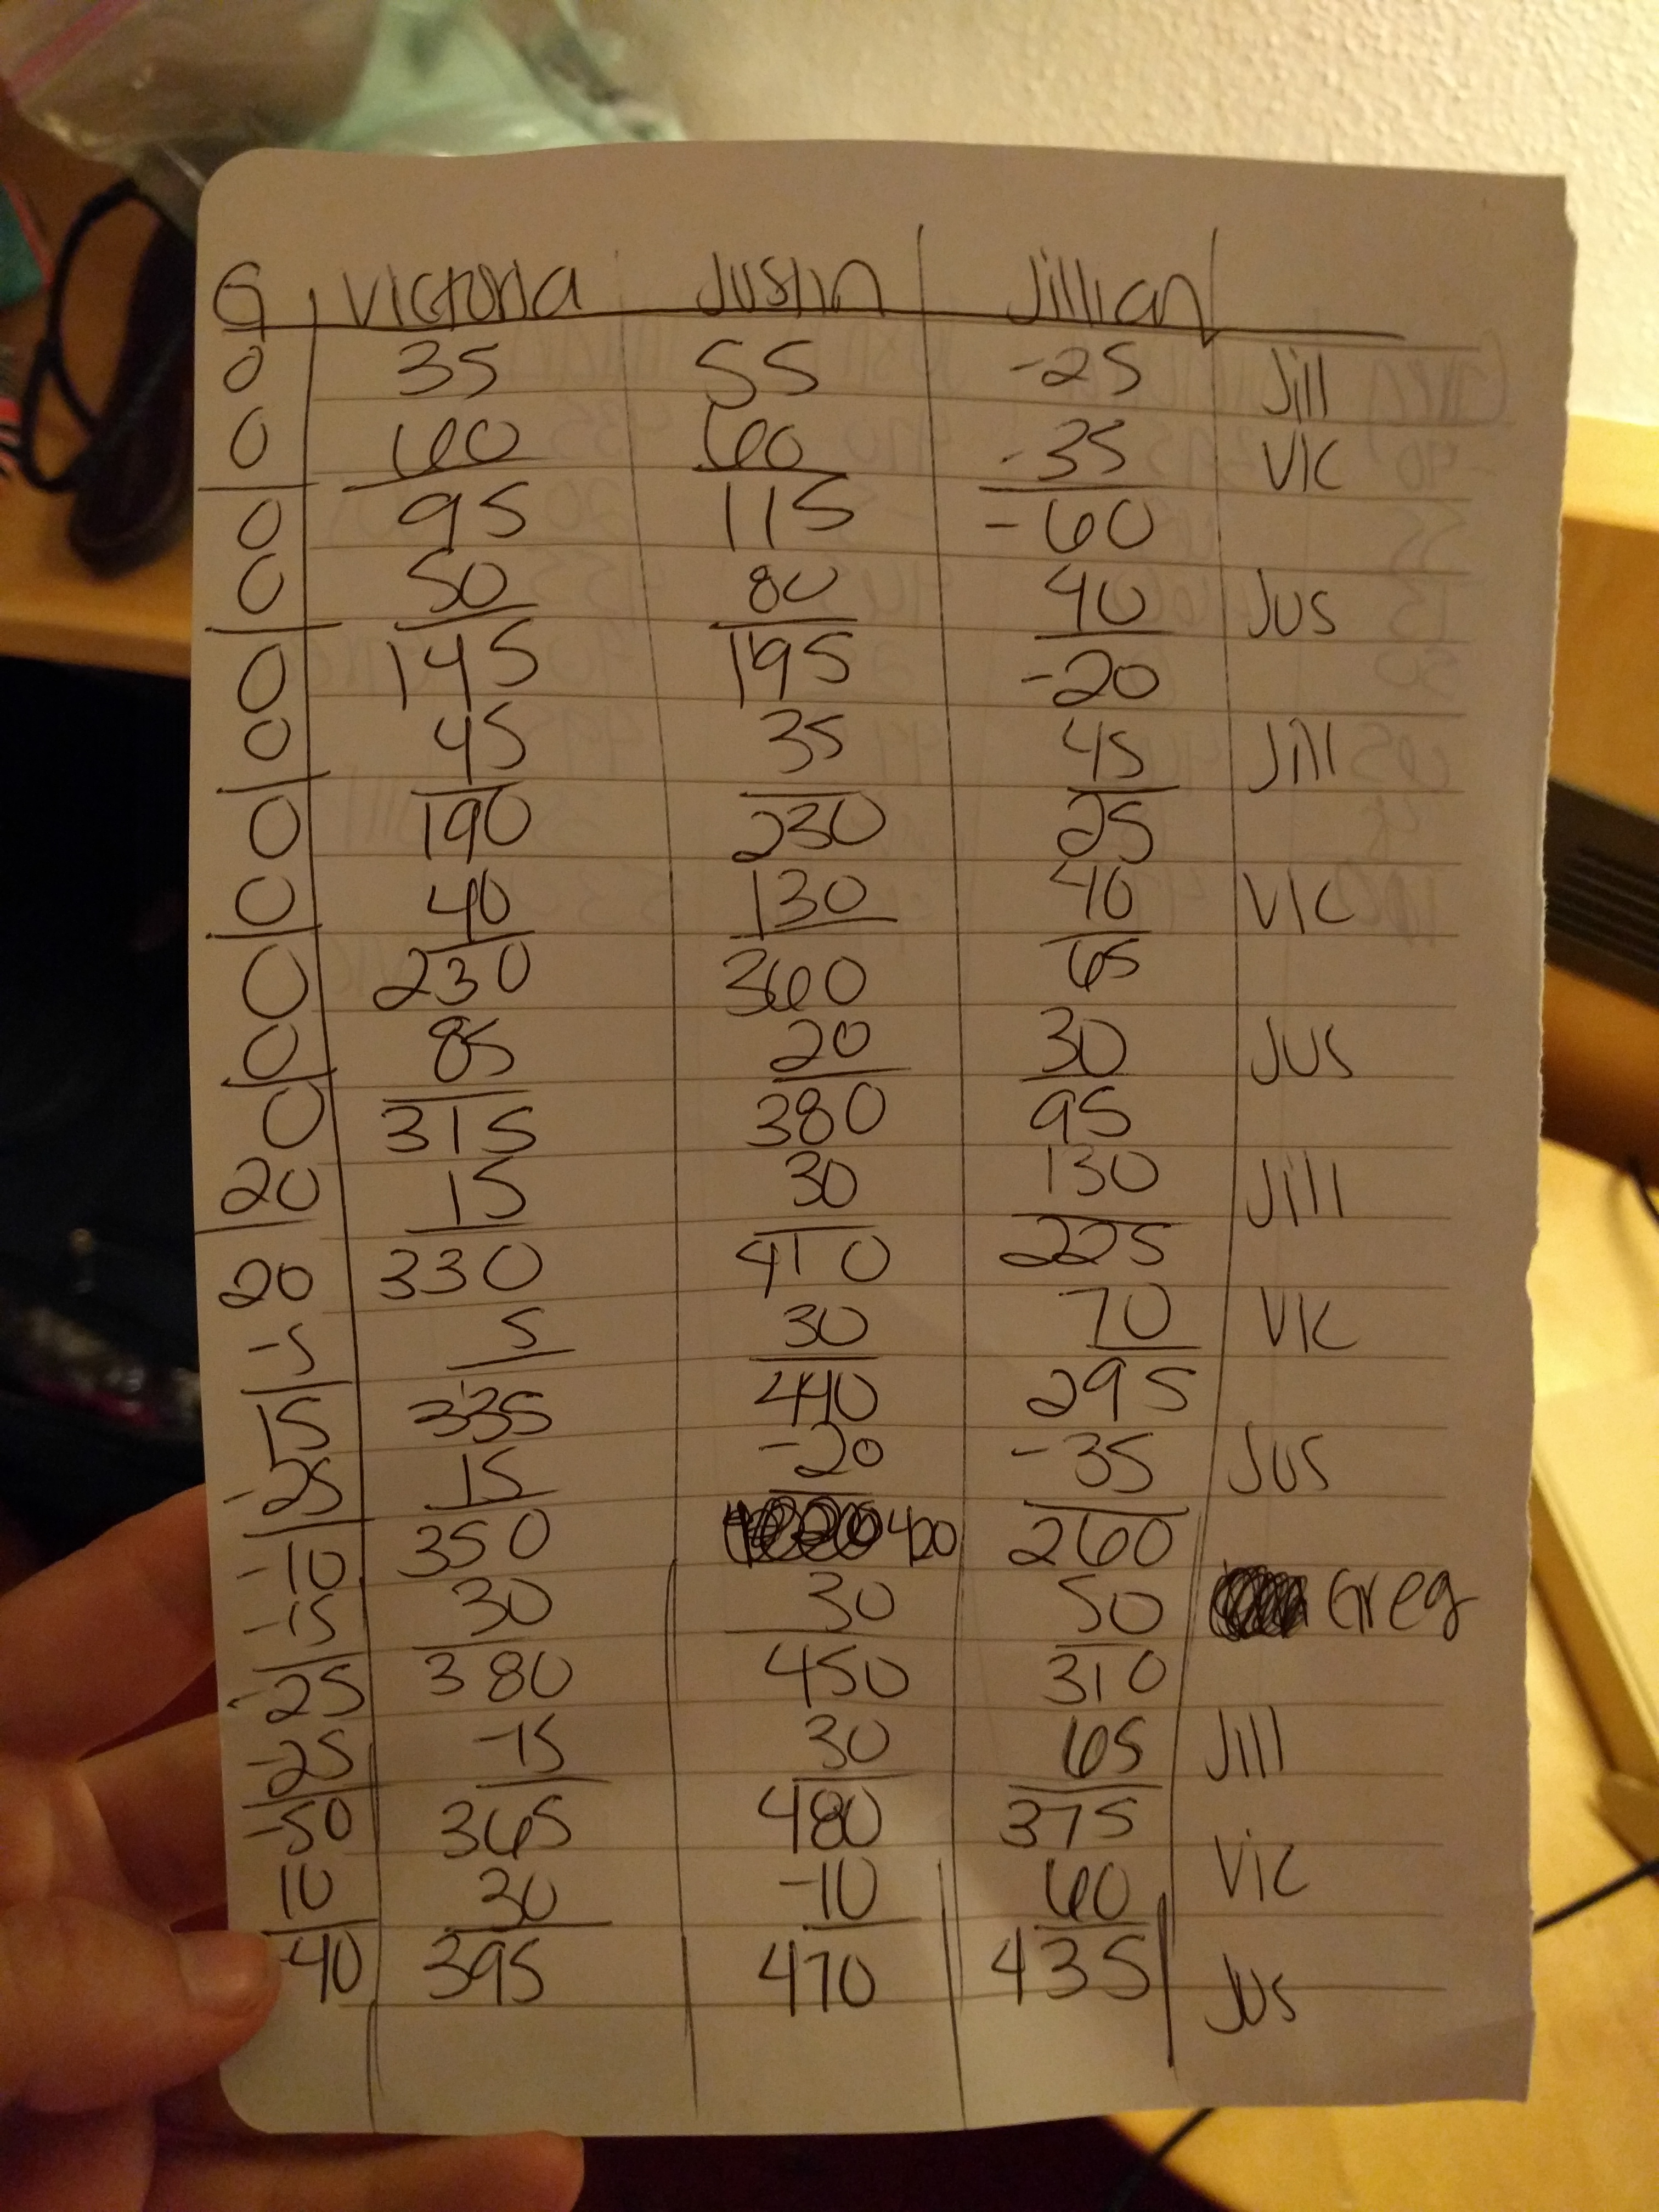 G Victoria Justin Jillian
0 35 55 -25 Jill
0 60 60 -35 Vic
0 95 115 -60
0 50 80 40 Jus
0 145 195 -20
0 45 35 45 Jill
0 190 230 25
0 40 130 40 Vic
0 230 360 65
0 85 20 30 Jus
0 315 380 95
20 15 30 130 Jill
20 330 410 225
-5 5 30 70 Vic
15 335 440 295
-25 15 -20 -35 Jus
-10 350 420 260
-15 30 30 50 Greg
-25 380 450 310
-25 -15 30 65 Jill
-50 365 480 375
10 30 -10 60 Vic
-40 395 470 435 Jus